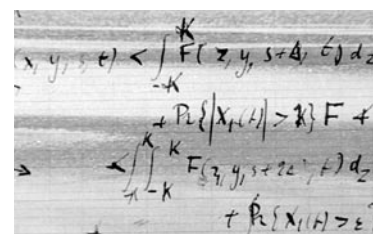 (x, y, s, t) < ∫_{-K}^{K} F(z, y, s+Δ, t) dz
+ Pr{|X₁(t)| > K} F +
< ∫∫_{-K}^{K} F(z, y, s+2Δ, t) dz
+ Pr{X₁(t) > ε